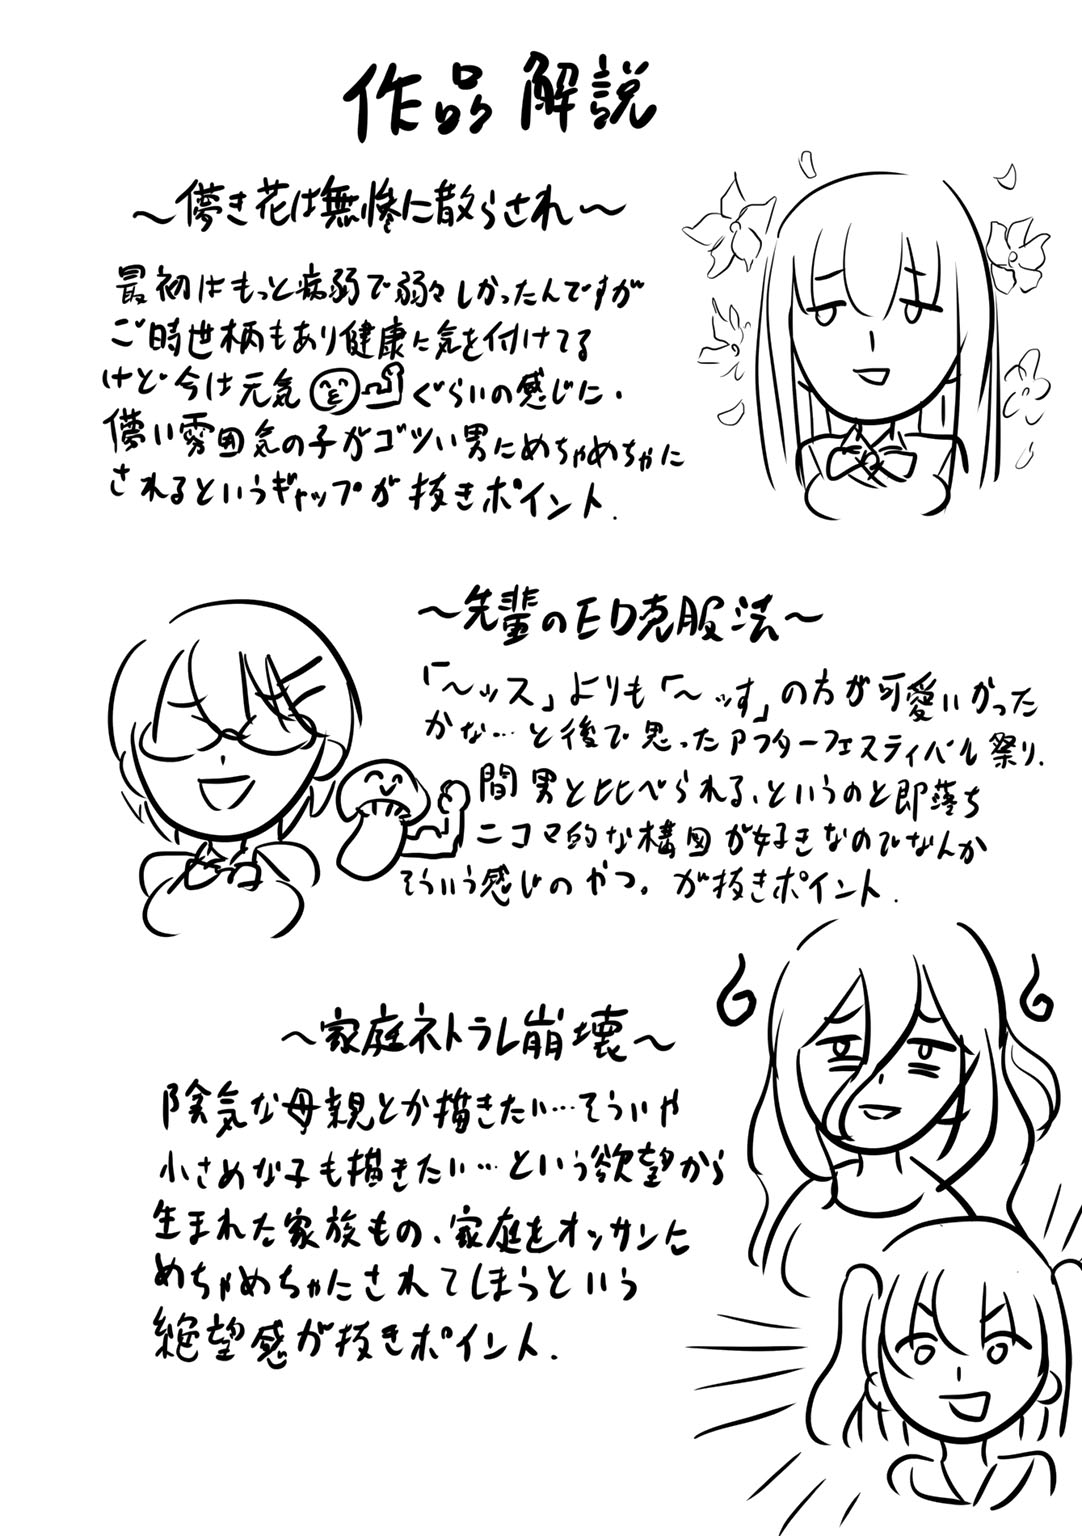 作品解説
～儚き花は無惨に散らされ～
最初はもっと病弱で弱々しかったんですが
ご時世柄もあり健康に気を付けてる
けど今は元気ぐらいの感じに、
儚い雰囲気の子がゴツい男にめちゃめちゃに
されるというギャップが抜きポイント.
～先輩のED克服法～
「～ッス」よりも「～ッす」の方が可愛いかった
かな…と後で思ったアフターフェスティバル祭り.
間男と比べられる、というのと即落ち
ニコマ的な構図が好きなのでなんか
そういう感じのやつ。が抜きポイント.
～家庭ネトラレ崩壊～
陰気な母親とか描きたい…そういや
小さめな子も描きたい…という欲望から
生まれた家族もの、家庭をオッサンに
めちゃめちゃにされてしまうという
絶望感が抜きポイント.